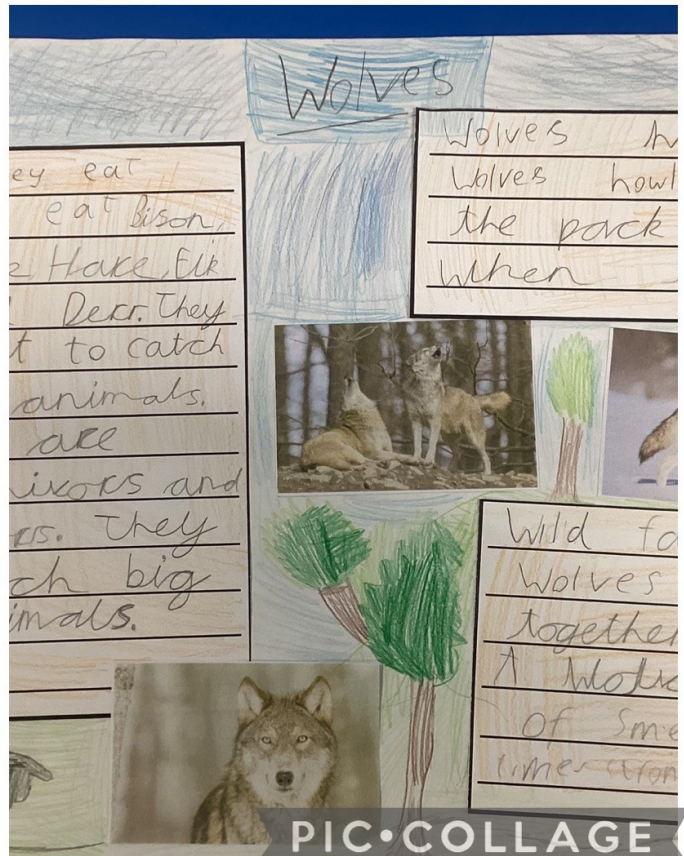 Wolves
ey eat
eat Bison,
e Hake, Elk
Derr. They
t to catch
animals.
are
ivors and
rs. They
ch big
imals.
Wolves h
Wolves howl
the pack
When
Wild fo
Wolves
together
A Wolv
of Sme
times
PIC•COLLAGE